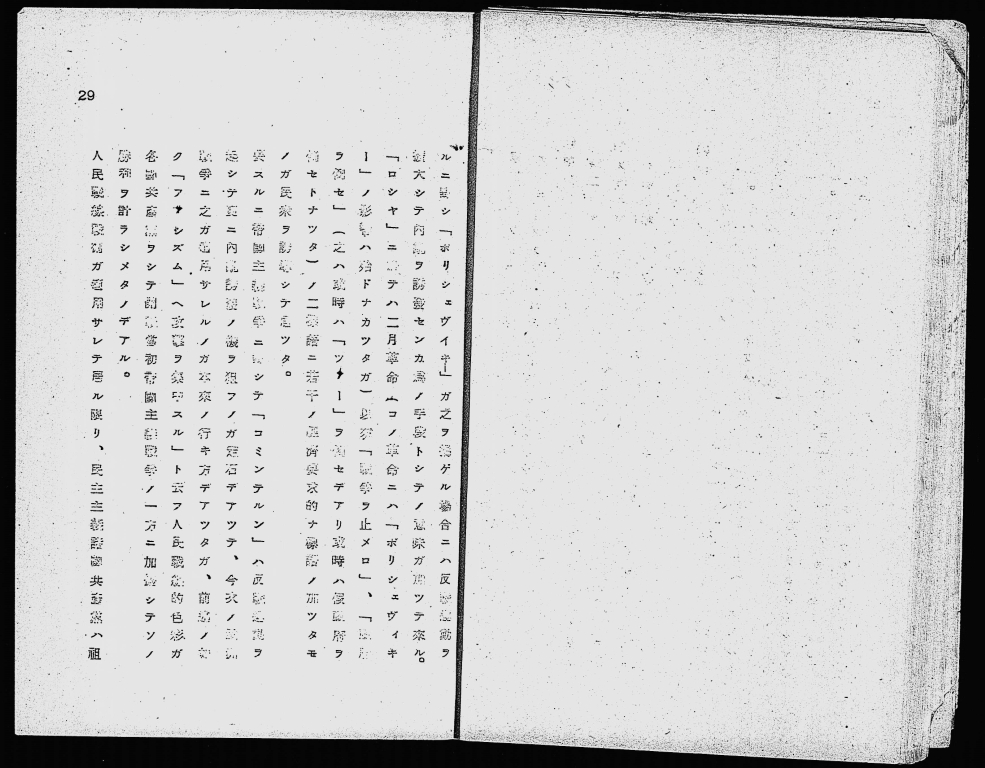 ルニ シ「ボリシェヴイキー」ガ之ヲ ゲル場合ニハ反 動ヲ
大シテ内亂ヲ誘發センカ爲ノ手段トシテノ意味ガ加ツテ來ル。
「ロシヤ」ニ テハ二月革命(コノ革命ニハ「ボリシェヴィキ
ー」ノ影響ハ殆ドナカツタガ)以來「戰爭ヲ止メロ」、「
ヲ倒セ」(之ハ或時ハ「ツァー」ヲ倒セデアリ或時ハ假政府ヲ
倒セトナツタ)ノ二標語ニ若干ノ經濟要求的ナ標語ノ加ツタモ
ノガ民衆ヲ誘導シテ ツタ。
要スルニ帝國主義戰爭ニ シテ「コミンテルン」ハ反戰 ヲ
シテ更ニ内亂誘發ノ機ヲ狙フノガ定石デアツテ、今次ノ
戰爭ニ之ガ適用サレルノガ本來ノ行キ方デアツタガ、前 ノ如
ク「フアシズム」ヘ攻擊ヲ集中スル」ト云フ人民戰線的色彩ガ
各國共產黨ヲシテ開戰當初帝國主義戰爭ノ一方ニ加 シテソノ
勝利ヲ計ラシメタノデアル。
人民戰線戰術ガ適用サレテ居ル限リ、民主主義諸國共產黨ハ祖
29